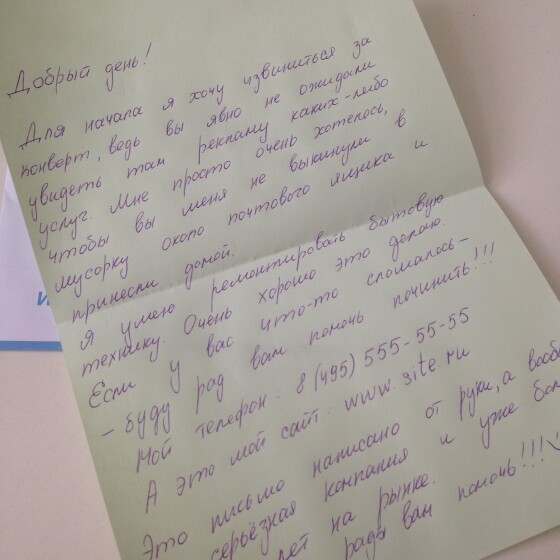 Добрый день!
Для начала я хочу извиниться за
конверт, ведь вы явно не ожидали
увидеть там рекламу каких-либо
услуг. Мне просто очень хотелось,
чтобы вы меня не выкинули в
мусорку около почтового ящика и
принесли домой.
Я умею ремонтировать бытовую
технику. Очень хорошо это делаю.
Если у вас что-то сломалось-
- буду рад вам помочь починить!!!
Мой телефон: 8 (495) 555-55-55
А это мой сайт: www.site.ru
Это письмо написано от руки, а вооб
серьёзная компания и уже бол
лет на рынке.
рады вам помочь!!!